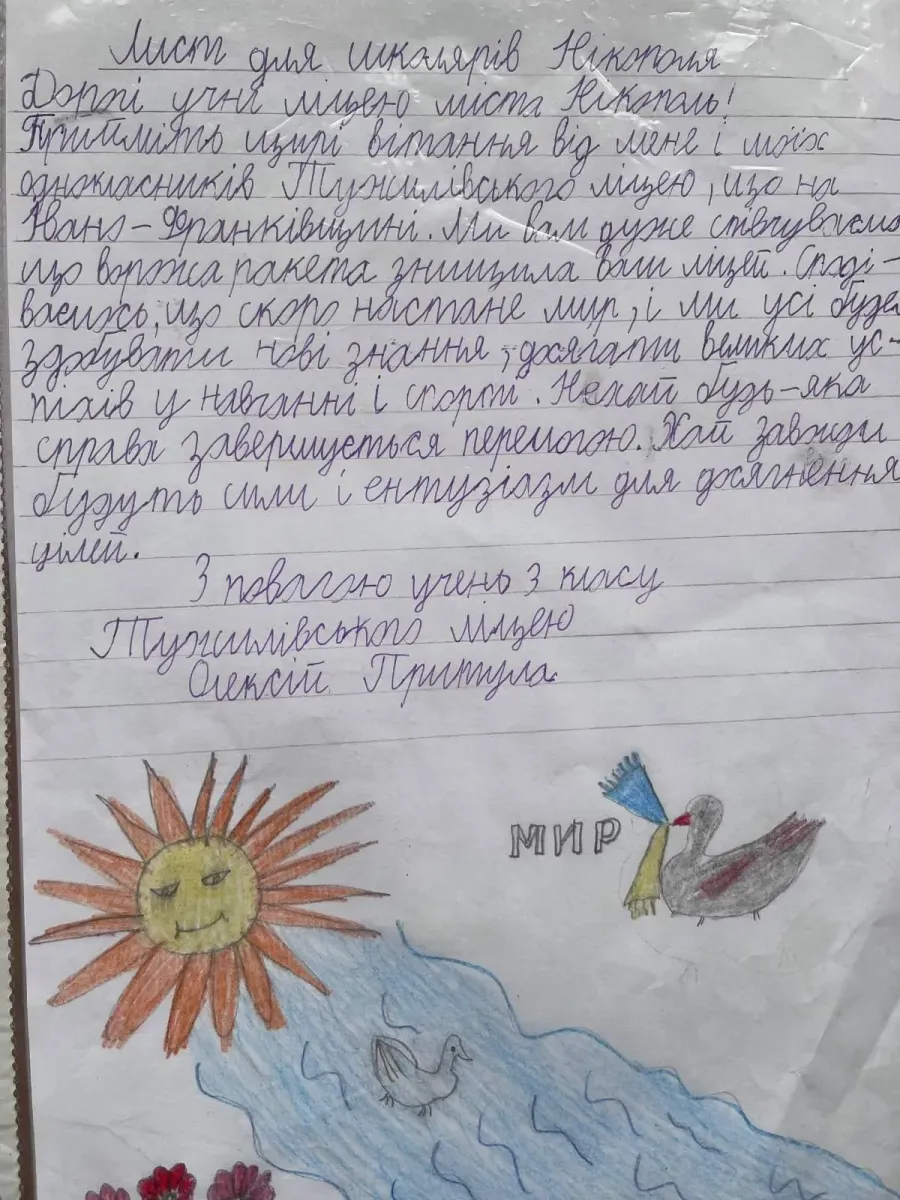 Лист для школярів Нікополя
Дорогі учні ліцею міста Нікополь!
Прийміть щирі вітання від мене і моїх
однокласників Тужилівського ліцею, що на
Івано-Франківщині. Ми вам дуже співчуваємо
що ворожа ракета знищила ваш ліцей. Споді-
ваюсь, що скоро настане мир, і ми усі будем
здобувати нові знання, досягати великих ус-
піхів у навчанні і спорті. Нехай будь-яка
справа завершується перемогою. Хай завжди
будуть сили і ентузіазм для досягнення
цілей.
З повагою учень 3 класу
Тужилівського ліцею
Олексій Притула
МИР